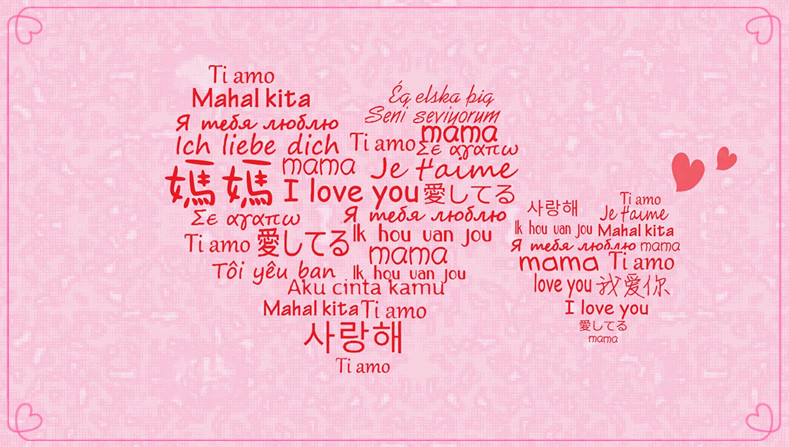 Ti amo
Mahal kita
Ég elska þig
Seni seviyorum
Я тебя люблю
mama
Ich liebe dich Ti amo Σε αγαπω
mama Je t'aime
媽媽 I love you 愛してる
Σε αγαπω Я тебя люблю
Ti amo 愛してる Ik hou van jou
mama
Tôi yêu ban Ik hou van jou
Aku cinta kamu
Mahal kita Ti amo
사랑해
Ti amo
Ti amo
사랑해 Je t'aime
Ik hou van jou Mahal kita
Я тебя люблю mama
mama Ti amo
love you 我爱你
I love you
愛してる
mama